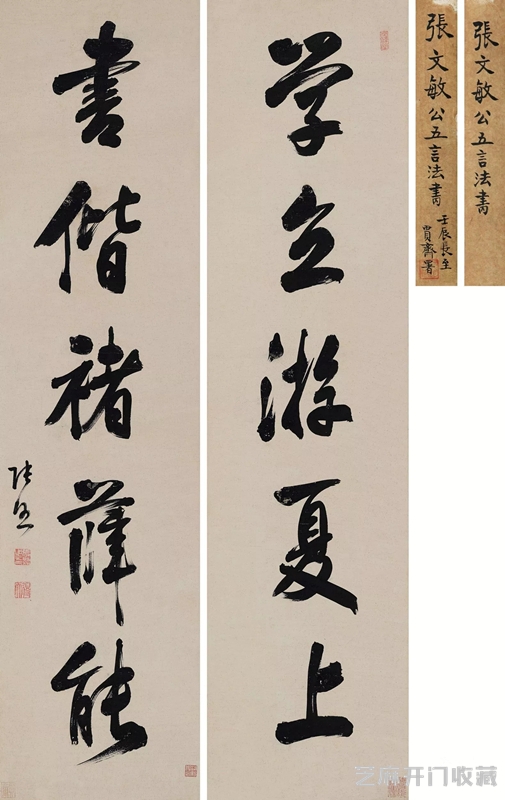 学立游夏上
書偕褚薛能
張照
張文敏公五言法書
張文敏公五言法書
壬辰長至
齋署
芝麻开门收藏